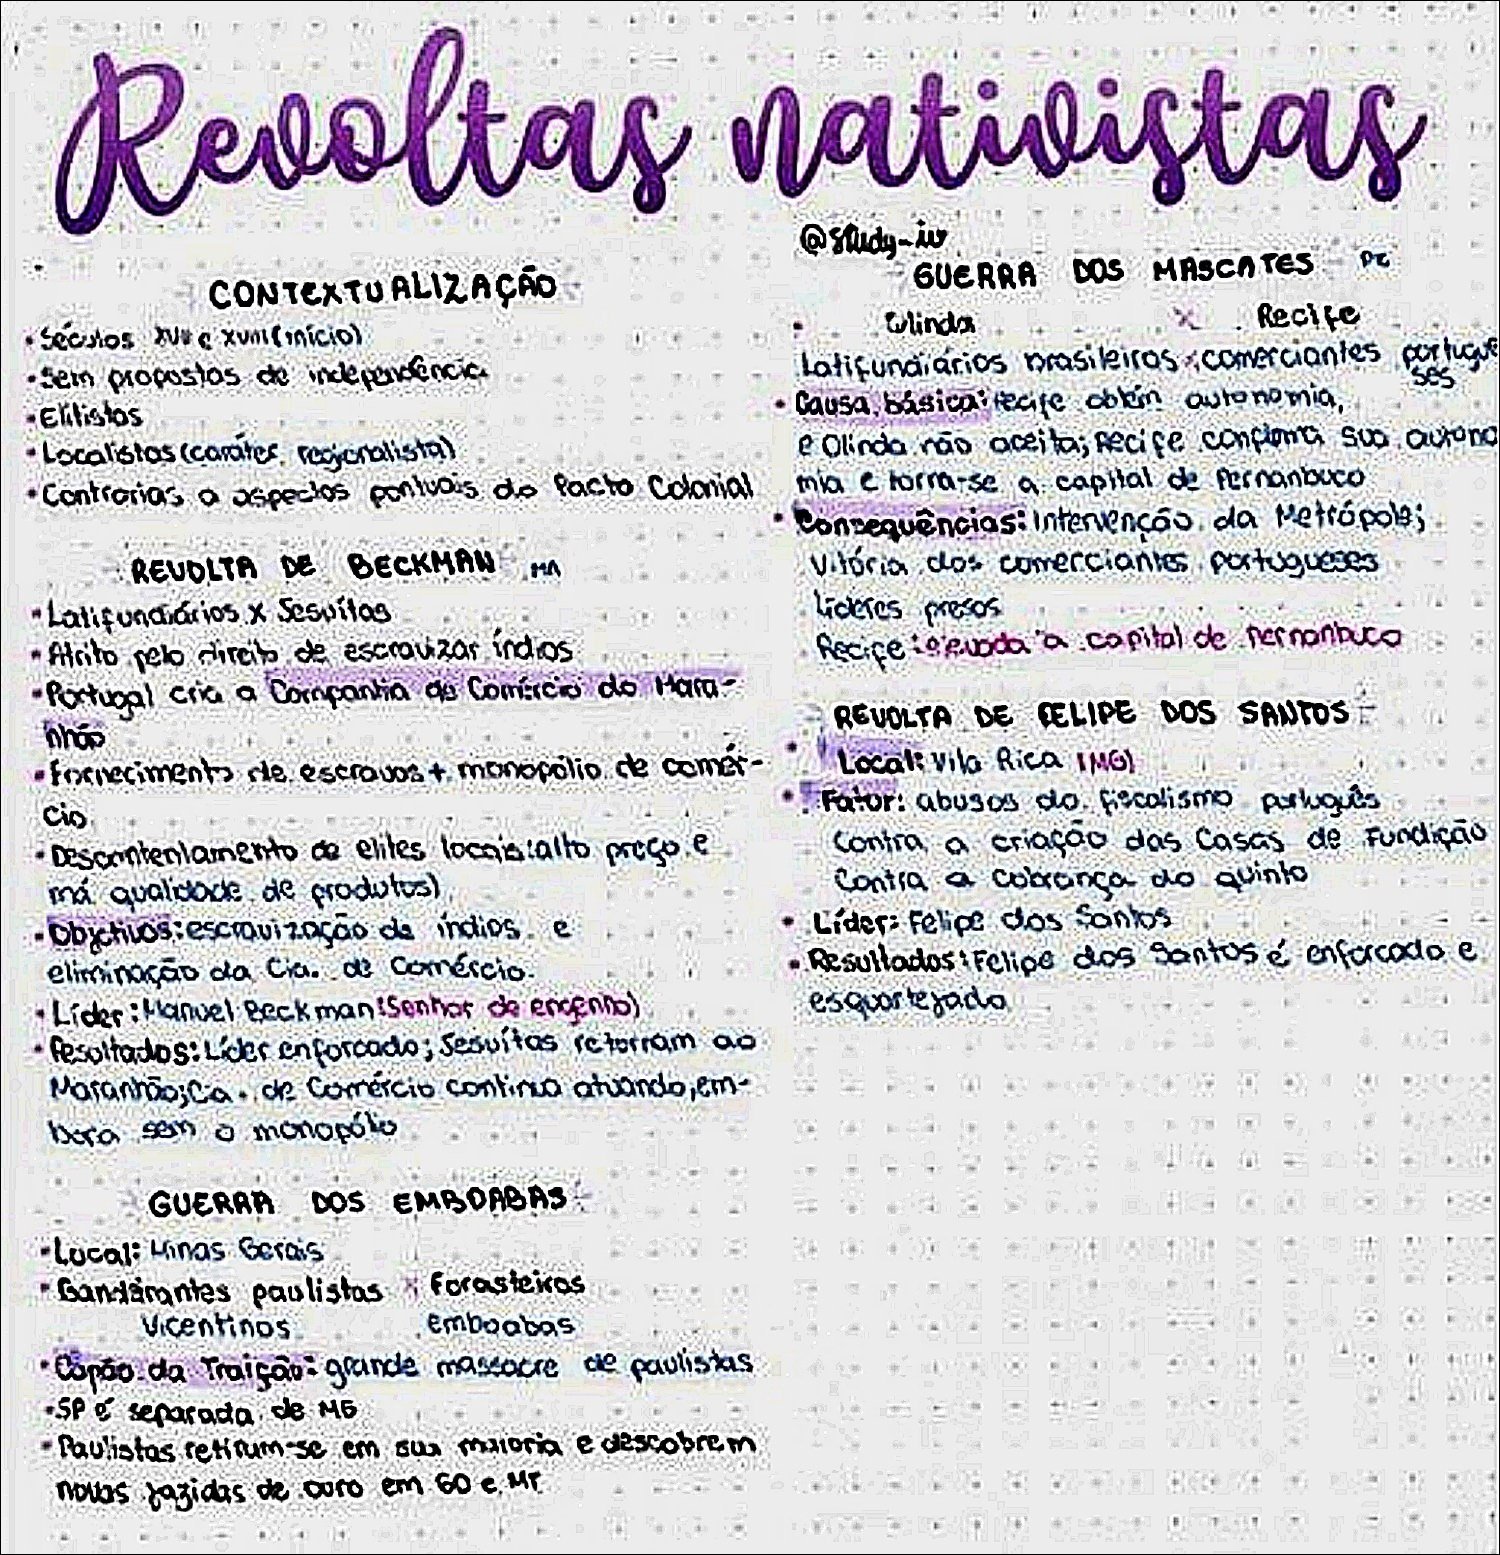 Revoltas nativistas
@study_iv
CONTEXTUALIZAÇÃO
• Séculos XVII e XVIII (início)
• Sem propostas de independência
• Elitistas
• Localistas (caráter regionalista)
• Contrarias a aspectos pontuais do Pacto Colonial
REVOLTA DE BECKMAN MA
• Latifundiários x Jesuítas
• Atrito pelo direito de escravizar índios
• Portugal cria a Companhia de Comércio do Mara-
nhão
• Fornecimento de escravos + monopólio de comér-
cio
• Descontentamento de elites locais: alto preço e
má qualidade de produtos)
• Objetivos: escravização de índios e
eliminação da Cia. de Comércio.
• Líder: Manuel Beckman (Senhor de engenho)
• Resultados: Líder enforcado; Jesuítas retornam ao
Maranhão; Cia. de Comércio continua atuando, em-
bora sem o monopólio
GUERRA DOS EMBOABAS
• Local: Minas Gerais
• Bandeirantes paulistas x Forasteiros
Vicentinos emboabas
• Capão da Traição: grande massacre de paulistas
• SP é separada de MG
• Paulistas retiram-se em sua maioria e descobrem
novas jazidas de ouro em GO e MT
GUERRA DOS MASCATES PE
• Olinda x Recife
Latifundiários brasileiros x comerciantes portugue
ses
• Causa básica: recife obtém autonomia,
e Olinda não aceita; Recife confirma sua autono
mia e torna-se a capital de Pernambuco
• Consequências: Intervenção da Metrópole;
Vitória dos comerciantes portugueses
Líderes presos
Recife: elevada a capital de Pernambuco
REVOLTA DE FELIPE DOS SANTOS
• Local: Vila Rica (MG)
• Fator: abusos do fiscalismo português
Contra a criação das Casas de Fundição
Contra a cobrança do quinto
• Líder: Felipe dos Santos
• Resultados: Felipe dos Santos é enforcado e
esquartejado